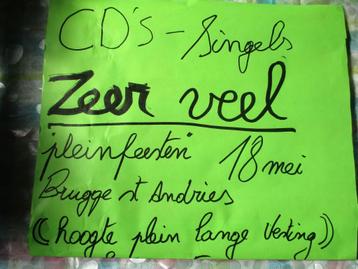 CD's - Singels
Zeer veel
"pleinfeesten" 18 mei
Brugge st Andries
(hoogte plein lange Vesting))